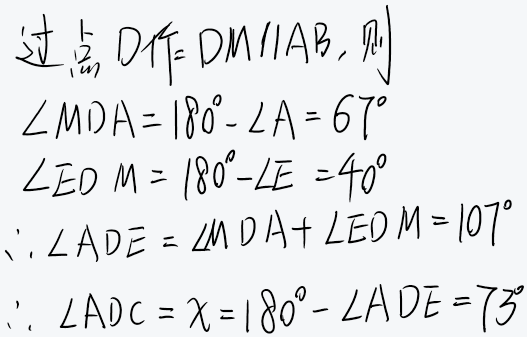 过点D作DM//AB,则
∠MDA=180°-∠A=67°
∠EDM=180°-∠E=40°
∴∠ADE=∠MDA+∠EDM=107°
∴∠ADC=x=180°-∠ADE=73°